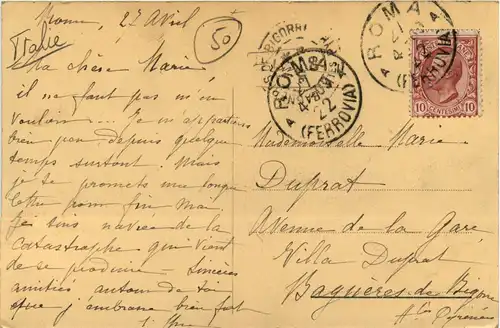 Rome, 27 Avril
Italie
50
Ma chère Marie
il ne faut pas m'en
vouloir... Je m'appartiens
bien peu depuis quelque
temps surtout. Mais
je te promets une longue
lettre pour fin Mai
Je suis navrée de la
catastrophe qui vient
de se produire - Sincères
amitiés autour de toi
que j'embrasse bien fort
ROMA
(FERROVIA)
22
A
ROMA
(FERROVIA)
A
10 CENTESIMI 10
Mademoiselle Marie
Duprat
Avenue de la Gare
Villa Duprat
Bagnères de Bigorre
Htes Pyrénées